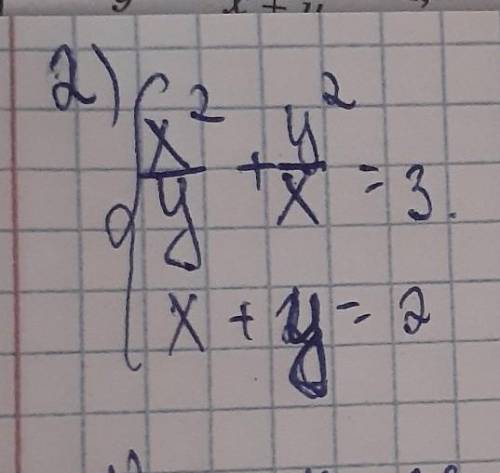 2) { x²/y + y²/x = 3.
x + y = 2